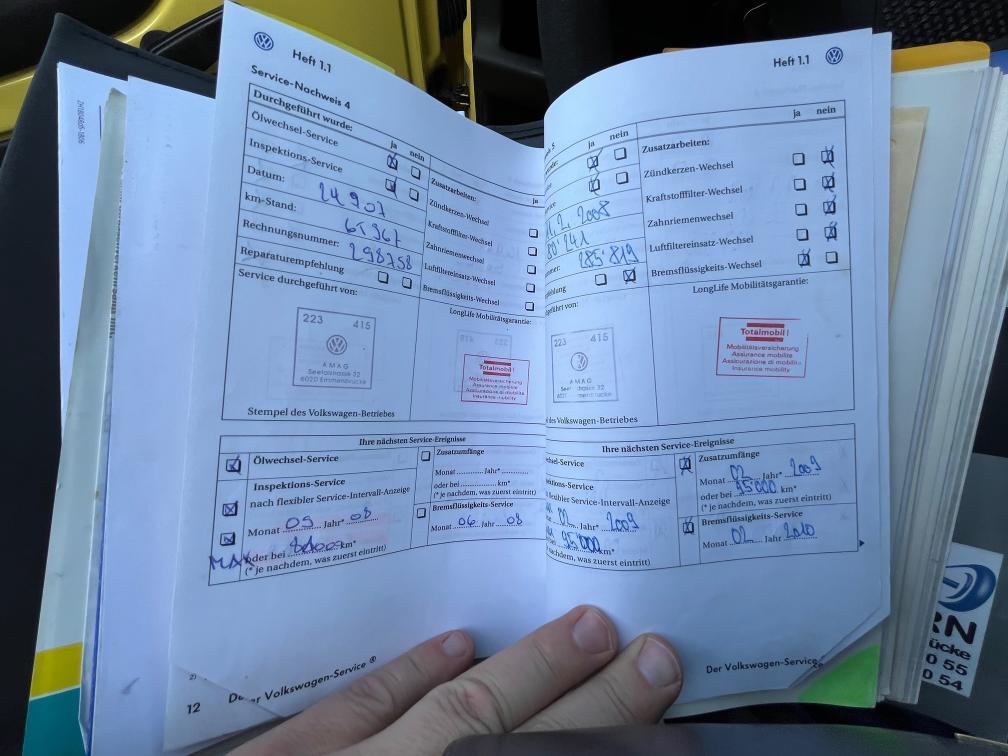 Heft 1.1
Service-Nachweis 4
Durchgeführt wurde:
ja nein
Ölwechsel-Service
Inspektions-Service
Datum: 24 9 07
km-Stand: 65 367
Rechnungsnummer: 298758
Reparaturempfehlung
Service durchgeführt von:
223 415
AMAG
Seetalstrasse 32
6020 Emmenbrücke
Stempel des Volkswagen-Betriebes
ja
Zusatzarbeiten:
Zündkerzen-Wechsel
Kraftstofffilter-Wechsel
Zahnriemenwechsel
Luftfiltereinsatz-Wechsel
Bremsflüssigkeits-Wechsel
LongLife Mobilitätsgarantie:
Totalmobil!
Mobilitätsversicherung
Assurance mobilité
Assicurazione di mobilità
Insurance mobility
Ihre nächsten Service-Ereignisse
Ölwechsel-Service
Inspektions-Service
nach flexibler Service-Intervall-Anzeige
Monat 09 Jahr* 08
MAX oder bei km*
(* je nachdem, was zuerst eintritt)
Zusatzumfänge
Monat Jahr*
oder bei km*
(* je nachdem, was zuerst eintritt)
Bremsflüssigkeits-Service
Monat 06 Jahr 08
12
Der Volkswagen-Service ®
Heft 1.1
5
ja nein
2. 2008
80'241
285'819
223 415
AMAG
Stempel des Volkswagen-Betriebes
ja nein
Zusatzarbeiten:
Zündkerzen-Wechsel
Kraftstofffilter-Wechsel
Zahnriemenwechsel
Luftfiltereinsatz-Wechsel
Bremsflüssigkeits-Wechsel
LongLife Mobilitätsgarantie:
Totalmobil!
Mobilitätsversicherung
Assurance mobilité
Assicurazione di mobilità
Insurance mobility
Ihre nächsten Service-Ereignisse
flexibler Service-Intervall-Anzeige
02 Jahr* 2009
95'000 km*
nachdem, was zuerst eintritt)
Zusatzumfänge
Monat 02 Jahr* 2009
oder bei 95'000 km*
(* je nachdem, was zuerst eintritt)
Bremsflüssigkeits-Service
Monat 02 Jahr 2010
Der Volkswagen-Service
RN
ücke
0 55
0 54